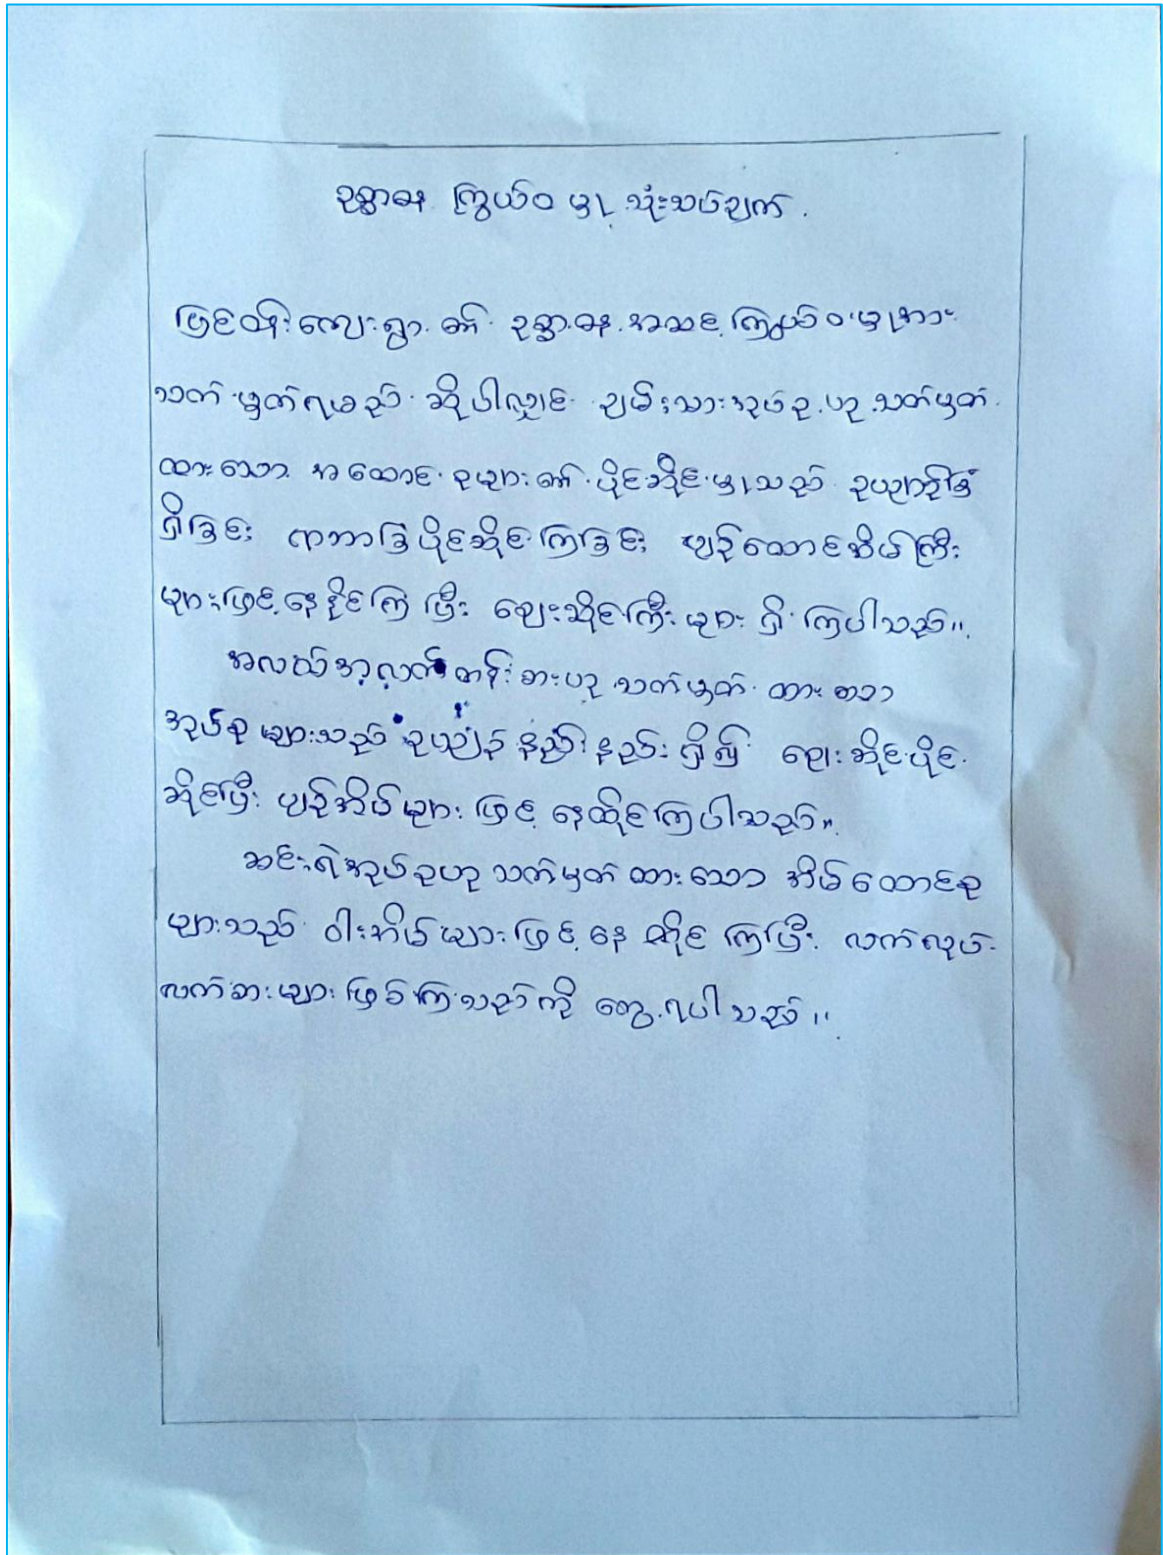 ဥစ္စာဓန ကြွယ်ဝ မှု သုံးသပ်ချက်
မြင်ထန်းလေးရွာ ၏ ဥစ္စာဓန အဆင့် ကြွယ်ဝ မှု အား
သတ် မှတ်ရမည် ဆိုပါလျှင် ချမ်းသားအုပ်စု ဟု သတ်မှတ်
ထားသော အထောင်စုများ၏ ပိုင်ဆိုင်မှုသည် ဥယျာဉ်ခြံ
ရှိခြင်း ရာဘာခြံပိုင်ဆိုင်ကြခြင်း ပျဉ်ထောင်အိမ်ကြီး
များဖြင့် နေနိုင်ကြ ပြီး ဈေးဆိုင်ကြီးများ ရှိ ကြပါသည်။
အလယ်အလတ်တန်းစားဟု သတ်မှတ် ထားသော
အုပ်စု များသည် ဥယျာဉ် နည်းနည်း ရှိ၍ ဈေးဆိုင်ပိုင်
ဆိုင်ပြီး ပျဉ်အိမ်များ ဖြင့် နေထိုင်ကြပါသည်။
ဆင်းရဲအုပ်စုဟု သတ်မှတ်ထားသော အိမ်ထောင်စု
များသည် ဝါးအိမ်များဖြင့် နေ ထိုင် ကြပြီး လက်လုပ်
လက်စားများ ဖြစ်ကြသည်ကို တွေ့ရပါသည်။